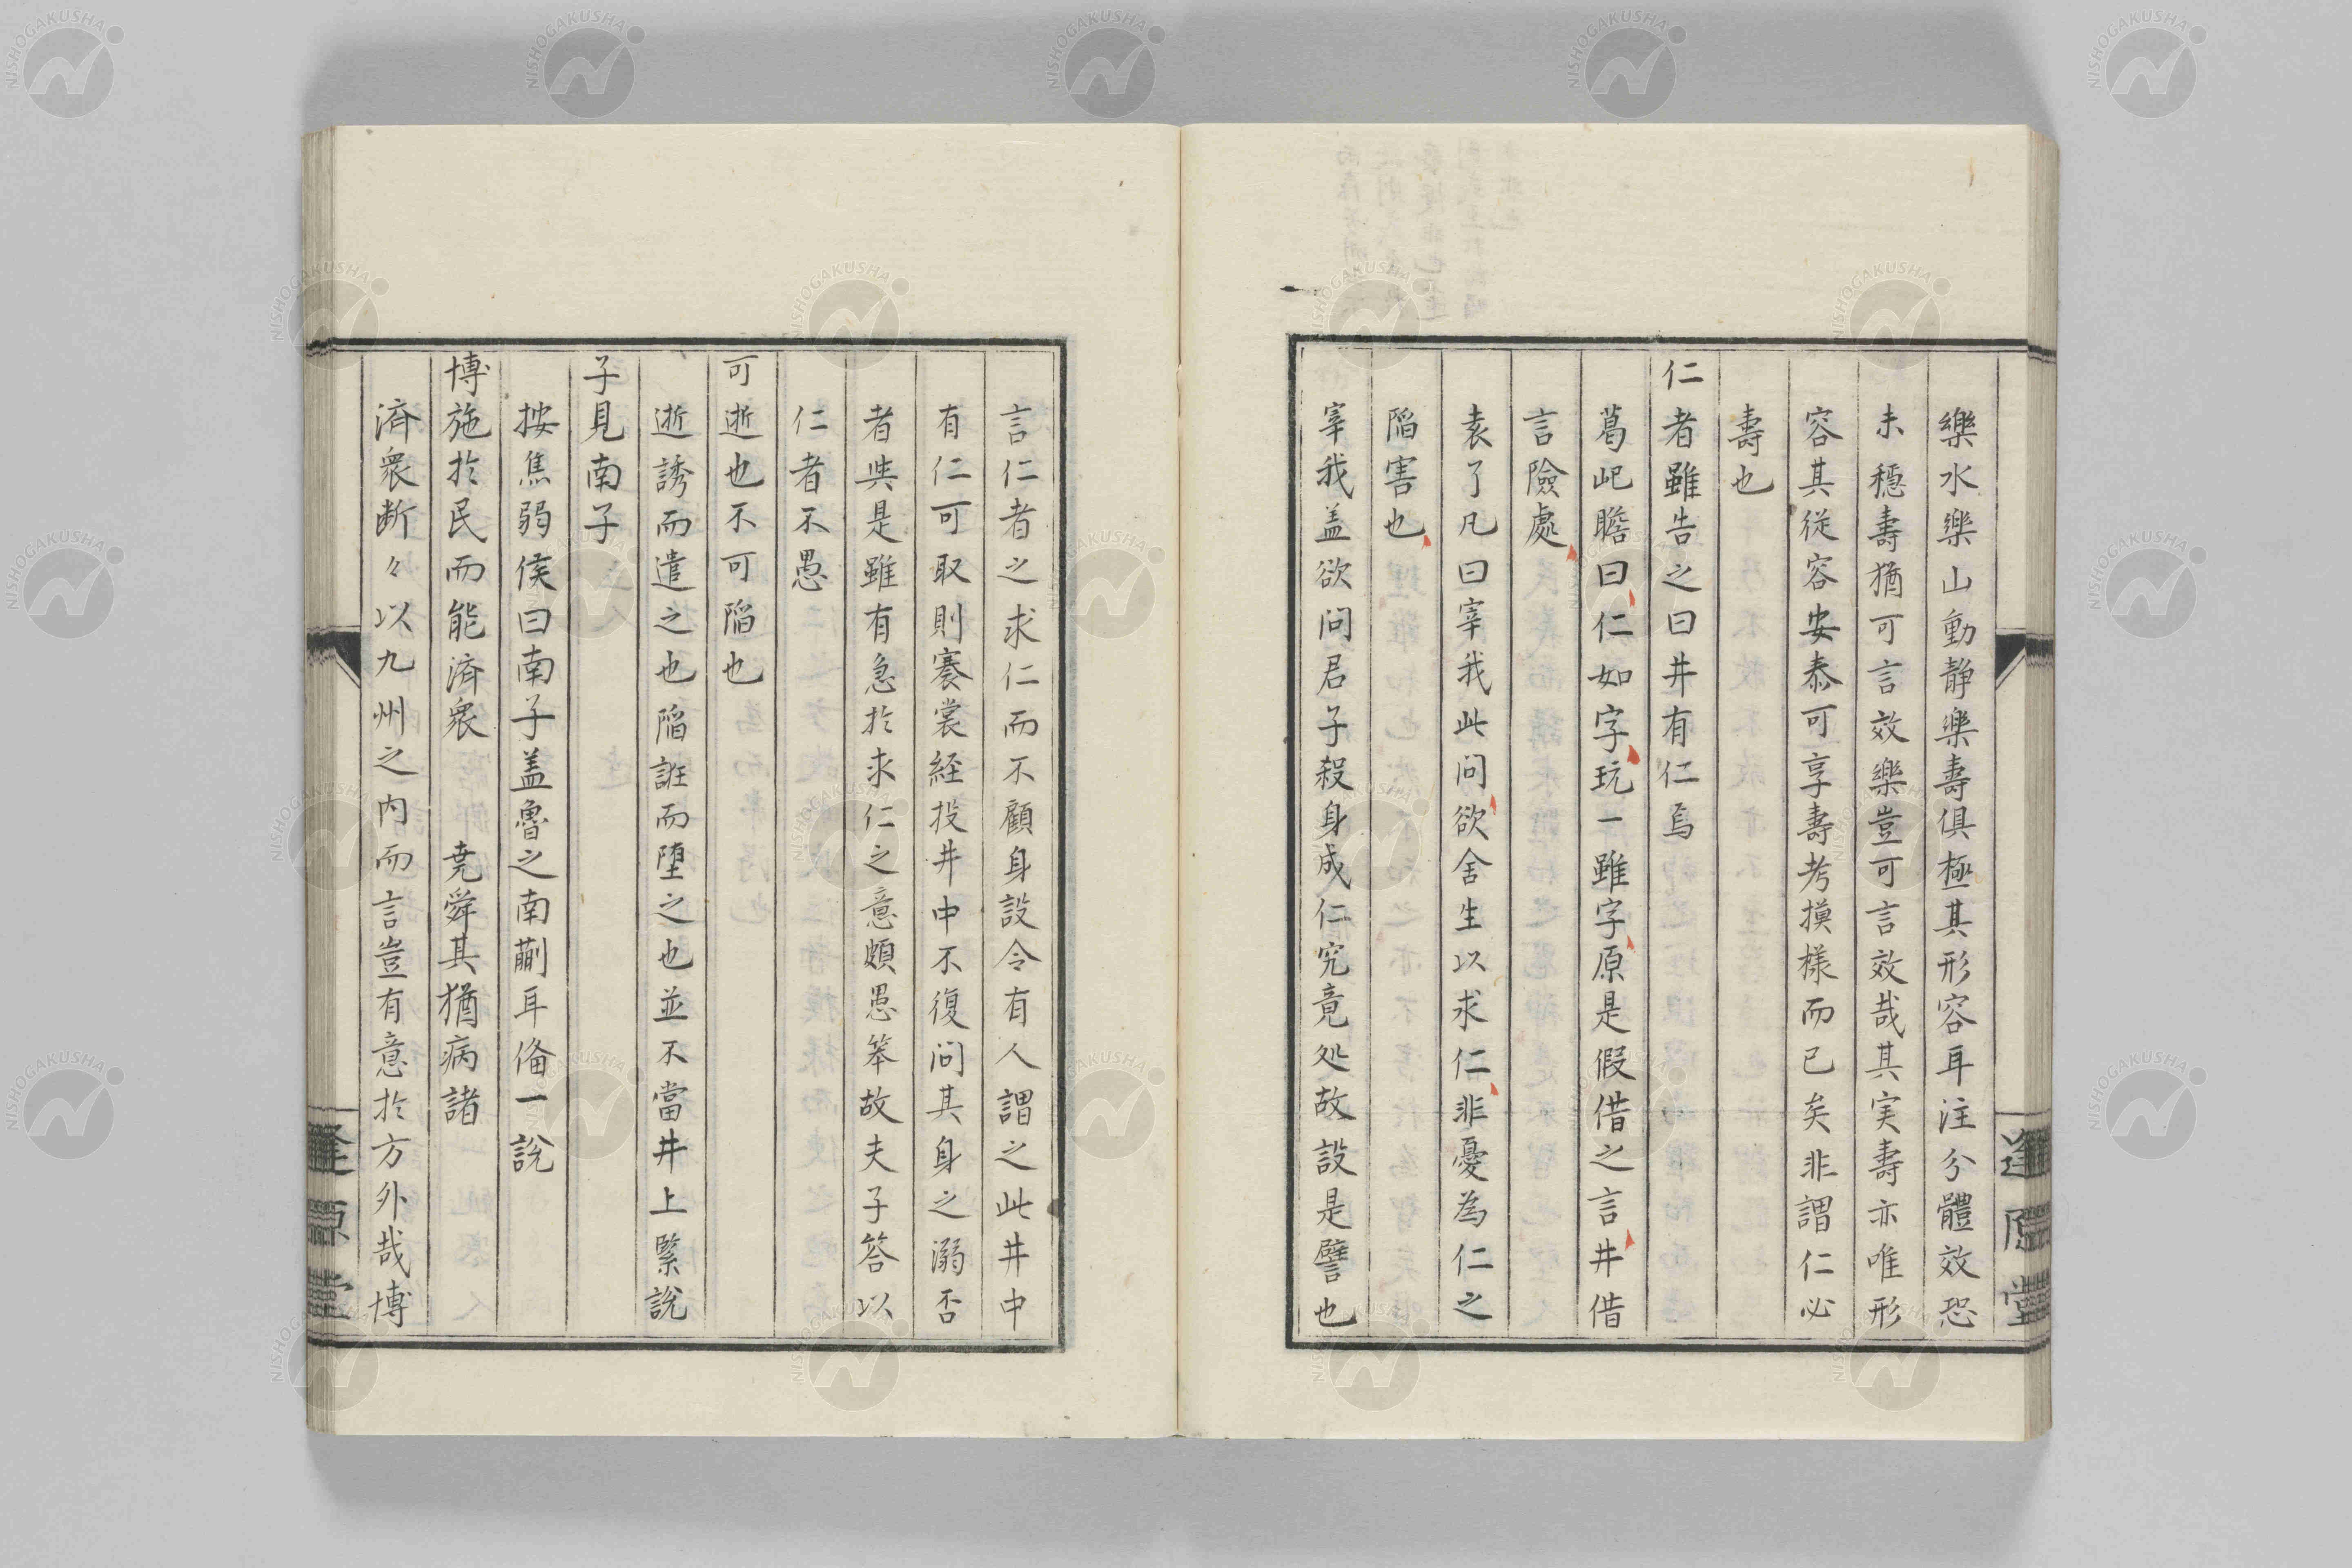 樂水樂山動静樂壽俱極其形容耳注分體效恐
未穏壽猶可言效樂豈可言效哉其実壽亦唯形
容其従容安泰可享壽考摸様而已矣非謂仁必
壽也
仁者雖告之曰井有仁焉
葛屺瞻曰仁如字玩一雖字原是假借之言井借
言險處
袁了凡曰宰我此問欲舍生以求仁非憂為仁之
陥害也
宰我盖欲問君子殺身成仁究竟処故設是譬也
逢原堂
言仁者之求仁而不顧身設令有人謂之此井中
有仁可取則褰裳経投井中不復問其身之溺否
者与是雖有急於求仁之意頗愚笨故夫子答以
仁者不愚
可逝也不可陥也
逝誘而遣之也陥誑而堕之也並不當井上緊說
子見南子
按焦弱侯曰南子盖魯之南蒯耳俻一說
博施於民而能済衆 堯舜其猶病諸
済衆断々以九州之内而言豈有意於方外哉博
逢原堂
NISHOGAKUSHA